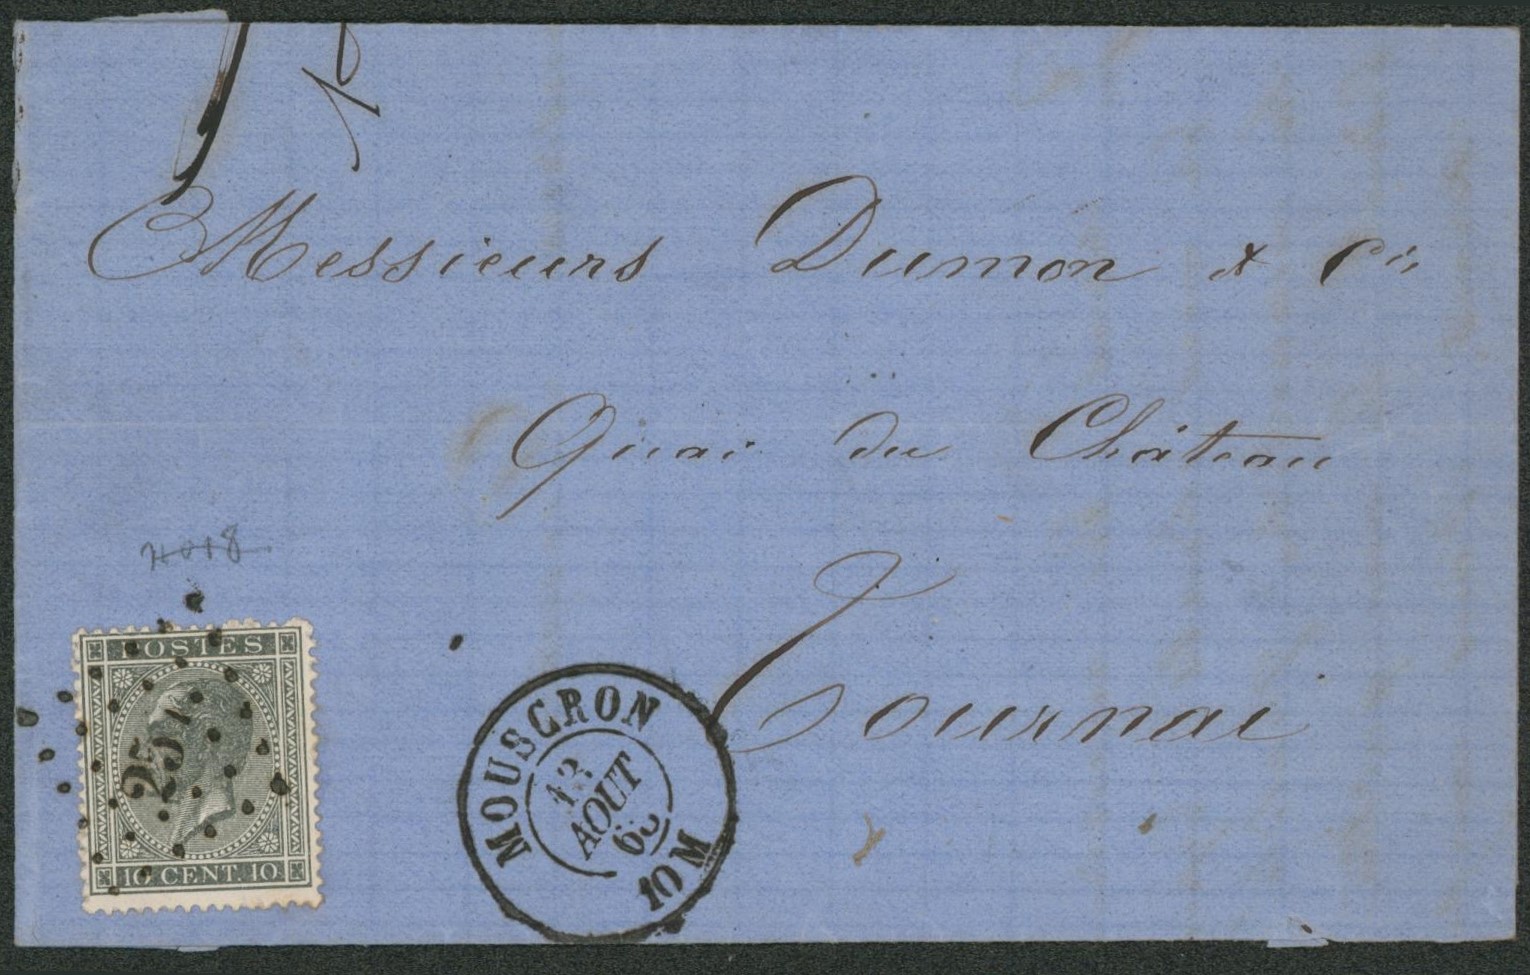 Messieurs Dumon & Cie
Quai du Château
Tournai
POSTES
10 CENT. 10
MOUSCRON
AOUT
10 M